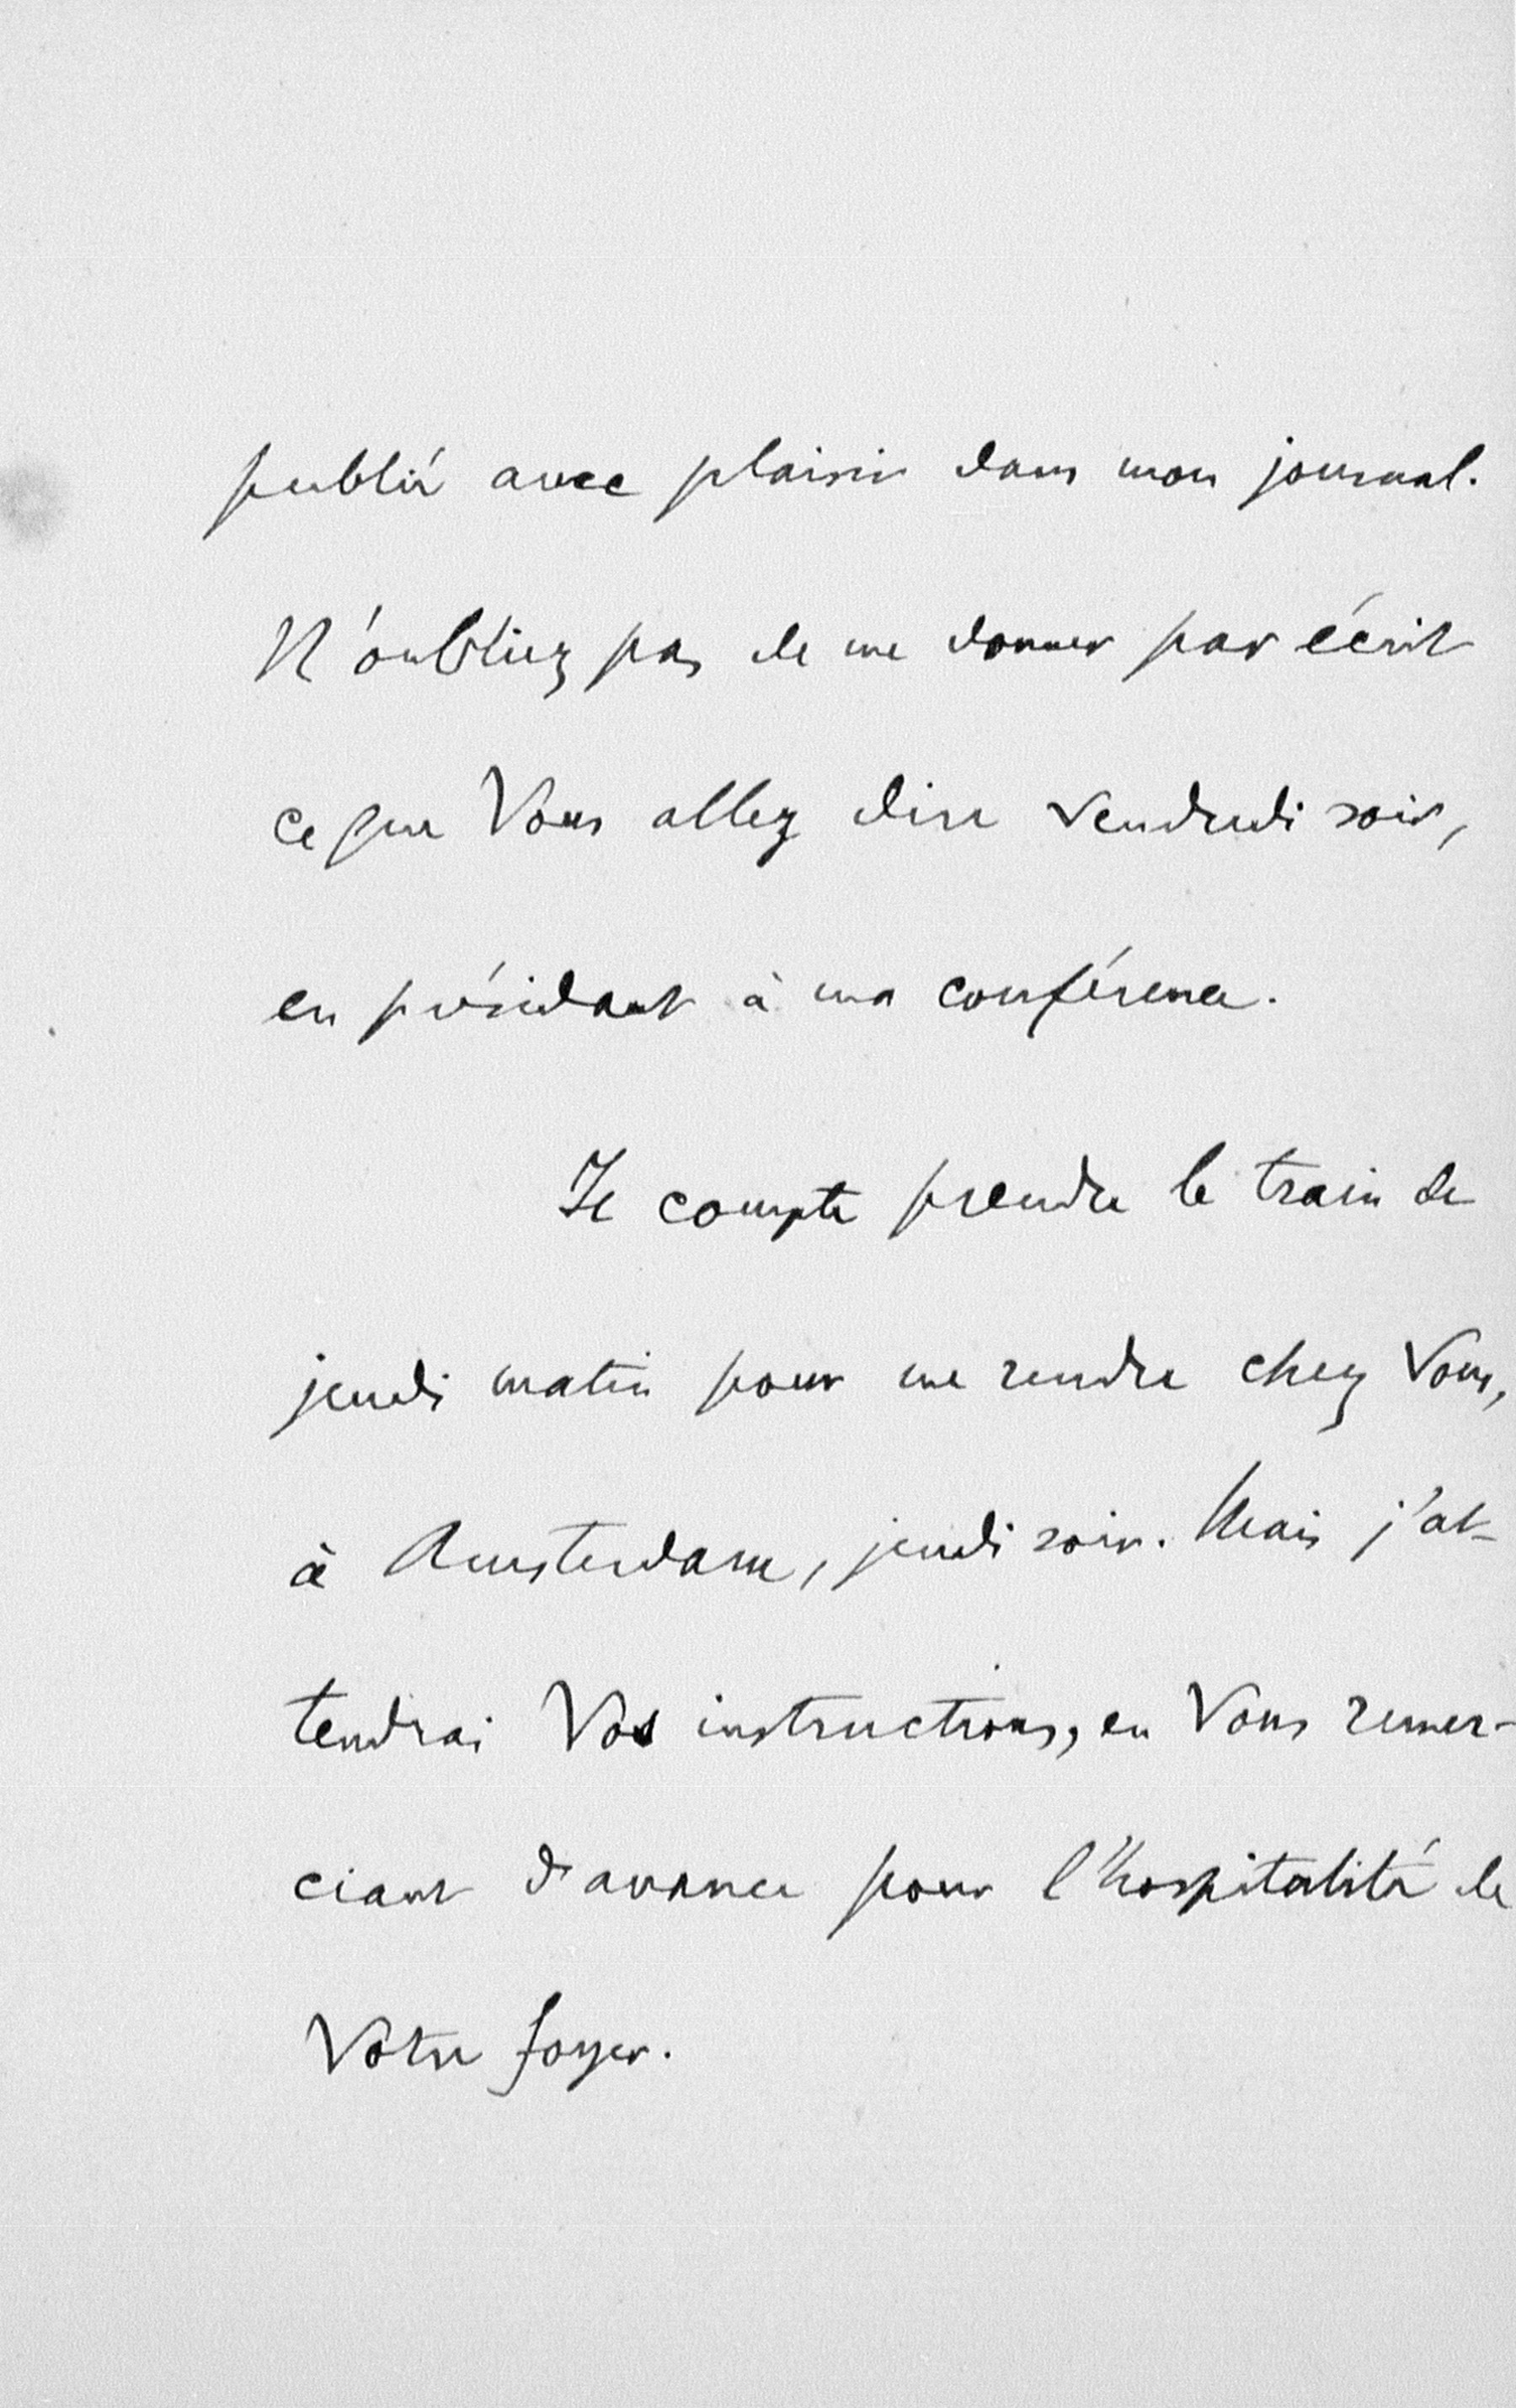 publié avec plaisir dans mon journal.
N'oubliez pas de me donner par écrit
ce que Vous allez dire vendredi soir,
en présidant à ma conférence.
Je compte prendre le train de
jeudi matin pour me rendre chez Vous,
à Amsterdam, jeudi soir. Mais j'at-
tendrai Vos instructions, en Vous remer-
ciant d'avance pour l'hospitalité de
Votre foyer.